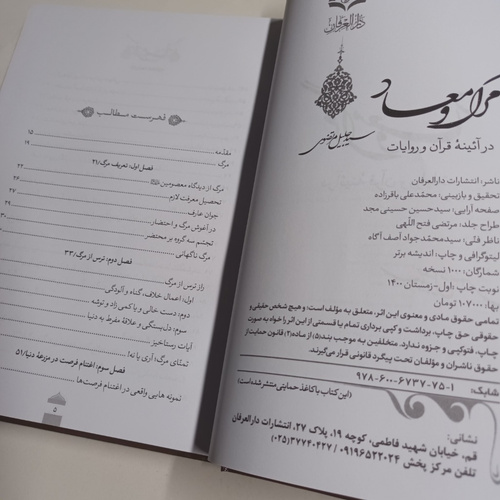 دارالعرفان
مرگ و معاد
در آئینهٔ قرآن و روایات
سید جلیل مرتضوی
ناشر: انتشارات دارالعرفان
تحقیق و بازبینی: محمدعلی باقرزاده
صفحه آرایی: سیدحسین حسینی مجد
طراح جلد: مرتضی فتح اللهی
ناظر فنی: سیدمحمدجواد آصف آگاه
لیتوگرافی و چاپ: اندیشه برتر
شمارگان: ۱۰۰۰ نسخه
نوبت چاپ: اول-زمستان ۱۴۰۰
بها: ۱۰۷۰۰۰ تومان
تمامی حقوق مادی و معنوی این اثر، متعلق به مؤلف است؛ و هیچ شخص حقیقی و
حقوقی حق چاپ، برداشت و کپی برداری تمام یا قسمتی از این اثر را خواه به صورت
چاپ، فتوکپی و جزوه ندارد. متخلفین به موجب بند (۵) از ماده (۲) قانون حمایت از
حقوق ناشران و مؤلفان تحت پیگرد قانونی قرار می‌گیرند.
شابک: ۹۷۸-۶۰۰-۶۷۳۷-۷۵-۱
(این کتاب با کاغذ حمایتی منتشر شده است)
نشانی:
قم، خیابان شهید فاطمی، کوچه ۱۹، پلاک ۲۷، انتشارات دارالعرفان
تلفن مرکز پخش ۰۹۱۹۶۵۲۲۰۲۴ / ۳۷۷۴۰۴۲۷ (۰۲۵)
فهرست مطالب
مقدمه ۱۵
مرگ ۱۹
فصل اول: تعریف مرگ/۲۱
مرگ از دیدگاه معصومین
تحصیل معرفت لازم ۲۶
جوان عارف ۲۷
در آغوش مرگ و احتضار ۲۹
تجسّم سه گروه بر محتضر
مرگ ناگهانی
فصل دوم: ترس از مرگ/۳۳
راز ترس از مرگ
اول: اعمال خلاف، گناه و آلودگی
دوم: دست خالی و یا کمی زاد و توشه
سوم: دل‌بستگی و علاقهٔ مفرط به دنیا
آیات رستاخیز
تمنّای مرگ: آری یا نه!
فصل سوم: اغتنام فرصت در مزرعهٔ دنیا/۵۱
نمونه هایی واقعی در اغتنام فرصت‌ها
۵